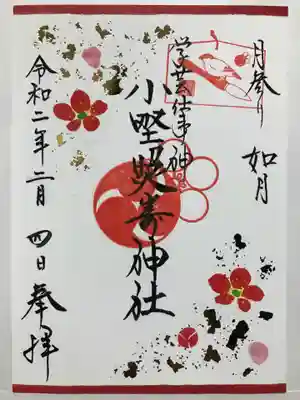 月参り 如月
学芸仕事神
小野照崎神社
令和二年二月四日奉拝